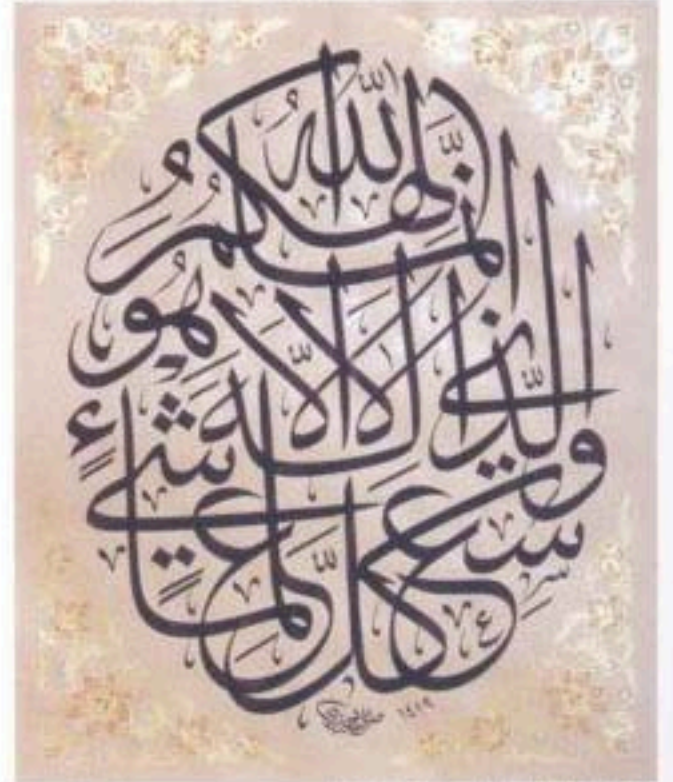 إنما إلهكم الله
الذي لا إله إلا هو
وسع كل شيء علما
١٤١٩